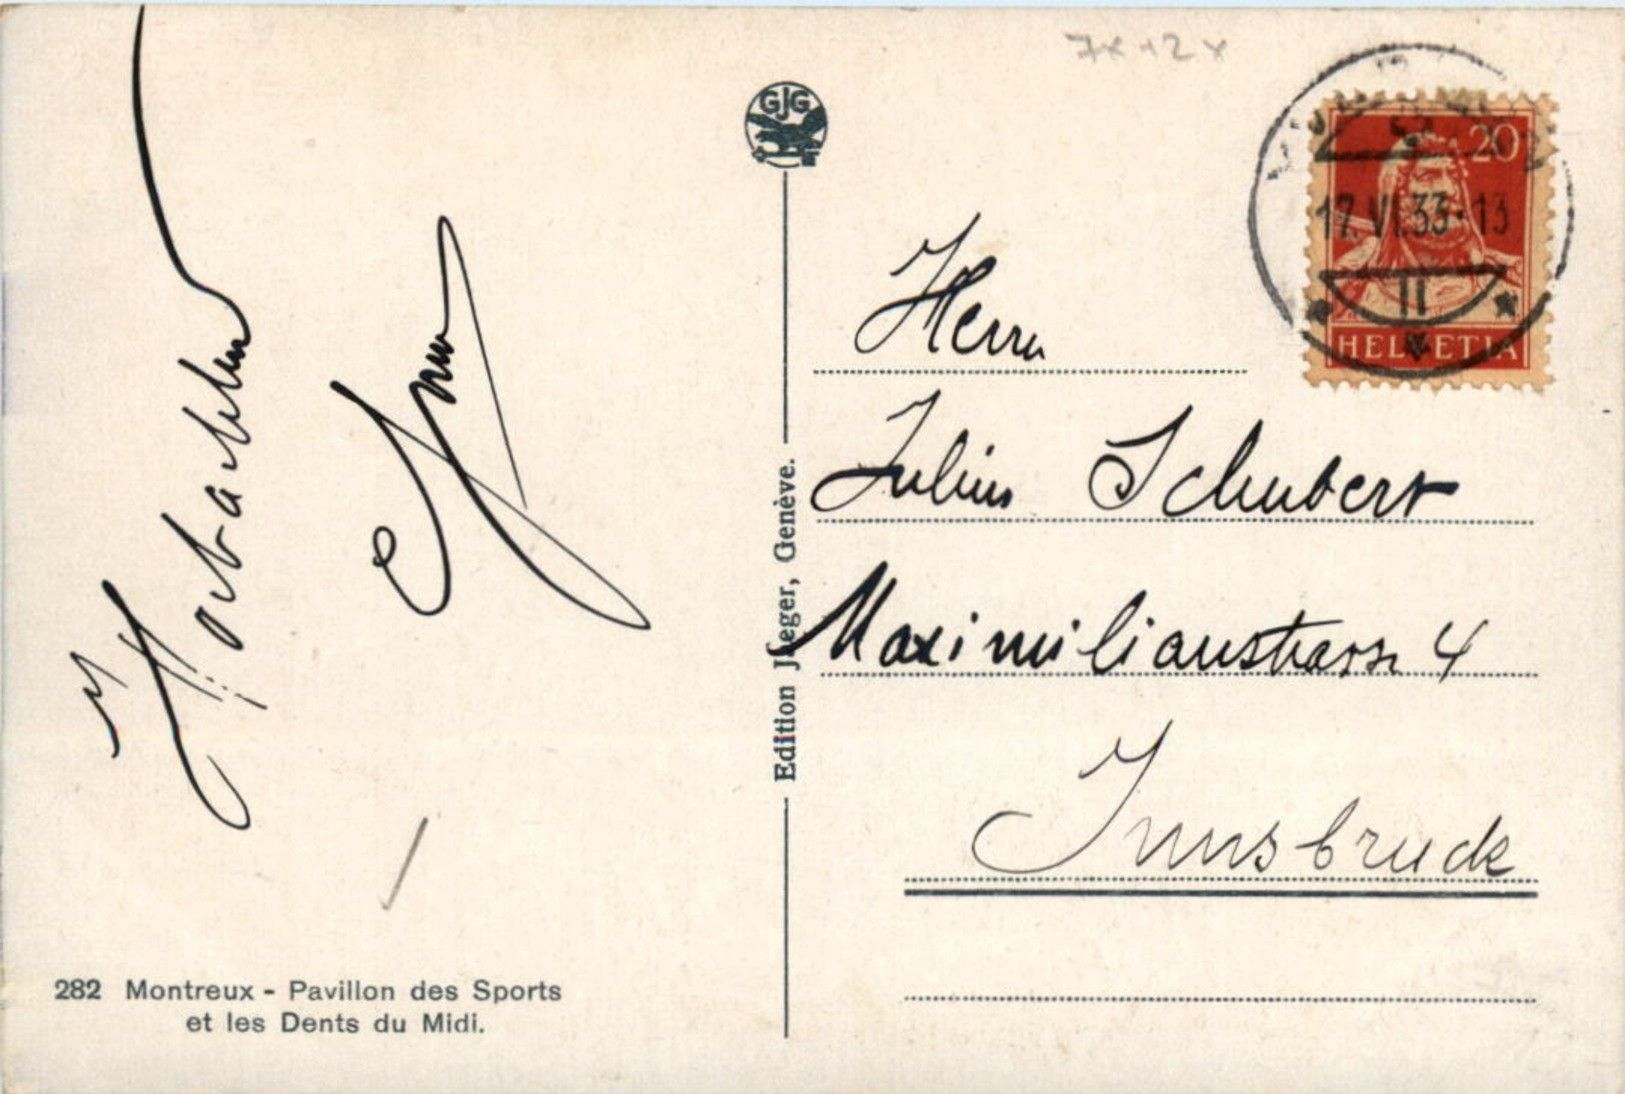 7x +2x
GJG
20
17. VI. 33-13
II
HELVETIA
Herrn
Julius Schubert
Maximilianstrasse 4
Innsbruck
Edition Jaeger, Genève.
282 Montreux - Pavillon des Sports
et les Dents du Midi.